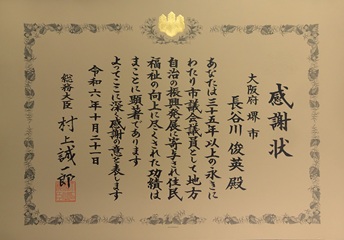 感謝状
大阪府堺市
長谷川俊英殿
あなたは三十五年以上の永きに
わたり市議会議員として地方
自治の振興発展に寄与され住民
福祉の向上に尽くされた功績は
まことに顕著であります
よってここに深く感謝の意を表します
令和六年十月二十一日
総務大臣 村上誠一郎